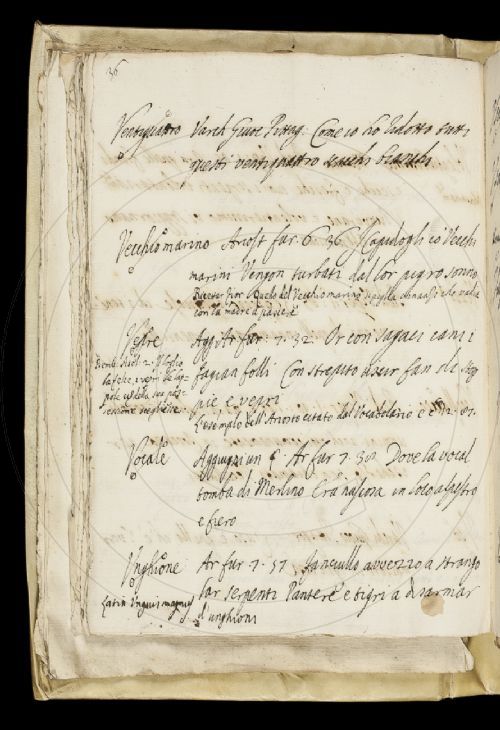 36
Ventiquattro Varch Giuoc Pittag. Come io ho ridotto tutti
questi ventiquattro scacchi bianchi
Vecchio marino Ariost fur. 6 36 I Capidogli co Vecchi
marini Vengon turbati dal lor pigro sonno
Ricett Fior Quelo del Vecchio marino
con la madre
Vepre Aggi Ar fur. 7. 32 Or con sagaci cani i
fagian folli Con strepito uscir fan di stop
pie e vepri
L'esempio dell'Ariosto citato dal Vocabolario è
Vocale Aggiugni un § Ar fur 7. 38 Dove la vocal
tomba di Merlino Era nascosa in loco alpestro
e fiero
Unghione Ar fur 7. 57 Fanciullo avvezzo a strango
lar serpenti Pantere e tigri a disarmar
Latin Unguis magnus
d'unghioni